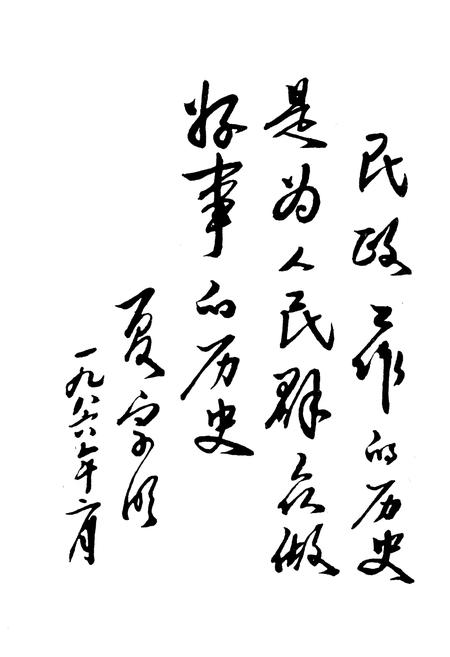 民政工作的历史
是为人民群众做
好事的历史
夏
一九八六年二月